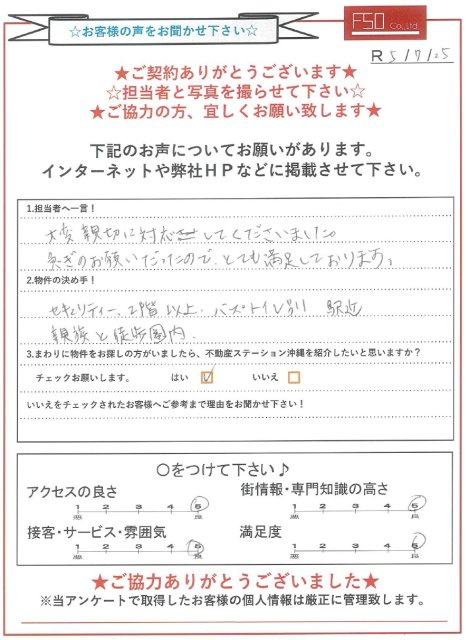 ☆お客様の声をお聞かせ下さい☆
FSO Co.,Ltd.
R5/7/25
★ご契約ありがとうございます★
☆担当者と写真を撮らせて下さい☆
★ご協力の方、宜しくお願い致します★
下記のお声についてお願いがあります。
インターネットや弊社HPなどに掲載させて下さい。
1.担当者へ一言！
大変親切に対応してくださいました。
急ぎのお願いだったので、とても満足しております。
2.物件の決め手！
セキュリティー、2階以上、バストイレ別 駅近
親族と徒歩圏内。
3.まわりに物件をお探しの方がいましたら、不動産ステーション沖縄を紹介したいと思いますか？
チェックお願いします。 はい ☑ いいえ □
いいえをチェックされたお客様へご参考まで理由をお聞かせ下さい！
〇をつけて下さい♪
アクセスの良さ 街情報・専門知識の高さ
1 2 3 4 5 1 2 3 4 5
悪 良 悪 良
接客・サービス・雰囲気 満足度
1 2 3 4 5 1 2 3 4 5
悪 良 悪 良
★ご協力ありがとうございました★
※当アンケートで取得したお客様の個人情報は厳正に管理致します。